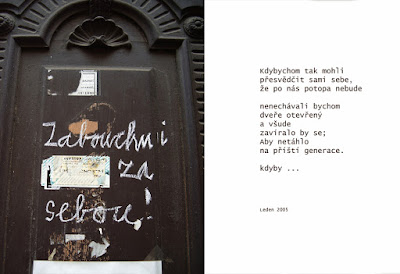 Zabouchni
za
sebou!
Kdybychom tak mohli
přesvědčit sami sebe,
že po nás potopa nebude
nenechávali bychom
dveře otevřený
a všude
zaviralo by se;
Aby netáhlo
na příští generace.
kdyby ...
Leden 2005